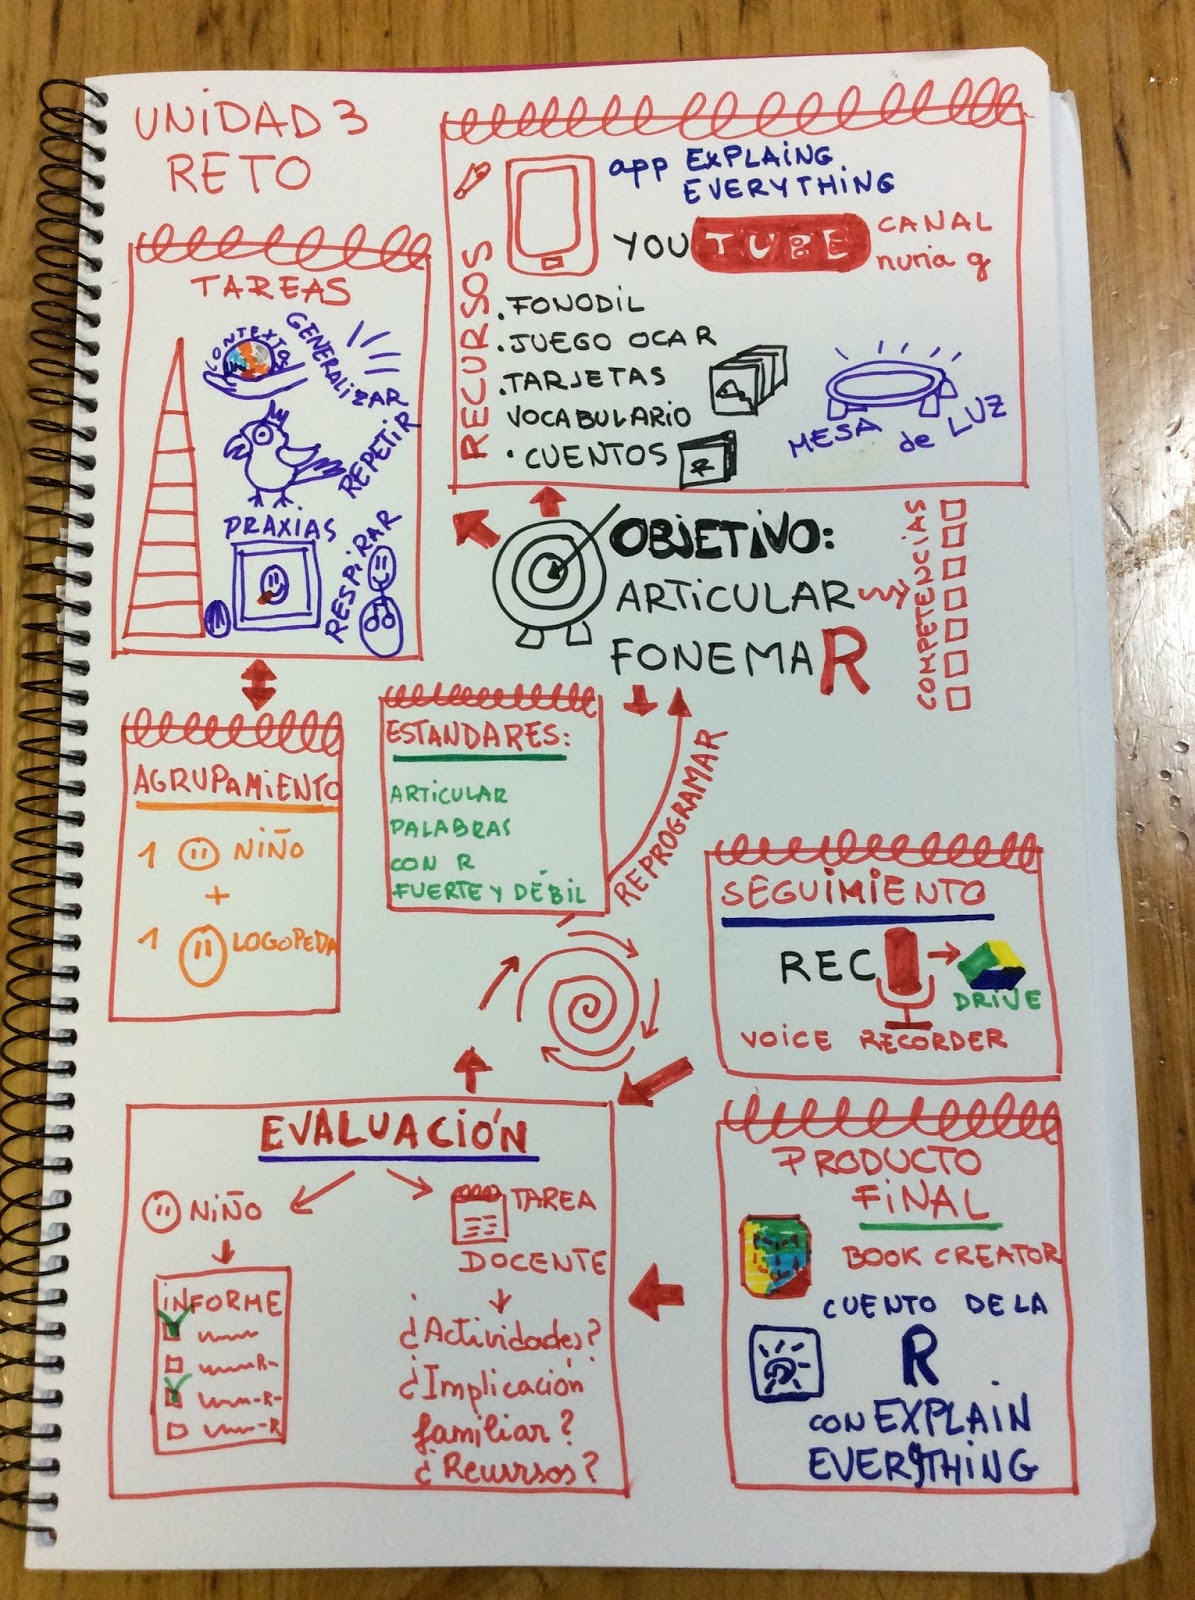 UNIDAD 3
RETO
TAREAS
CONTEXTO
GENERALIZAR
REPETIR
PRAXIAS
RESPIRAR
RECURSOS
app EXPLAING
EVERYTHING
YOU TUBE
CANAL
nuria g
.FONODIL
.JUEGO OCAR
.TARJETAS
VOCABULARIO
.CUENTOS
R
MESA de LUZ
OBJETIVO:
ARTICULAR
FONEMA R
COMPETENCIAS
AGRUPAMIENTO
1 NIÑO
+
1 LOGOPEDA
ESTANDARES:
ARTICULAR
PALABRAS
CON R
FUERTE Y DÉBIL
REPROGRAMAR
SEGUIMIENTO
REC
DRIVE
VOICE RECORDER
EVALUACIÓN
NIÑO
INFORME
R-
-R-
-R
TAREA
DOCENTE
¿Actividades?
¿Implicación
familiar?
¿Recursos?
PRODUCTO
FINAL
BOOK CREATOR
CUENTO DE LA
R
CON EXPLAIN
EVERYTHING